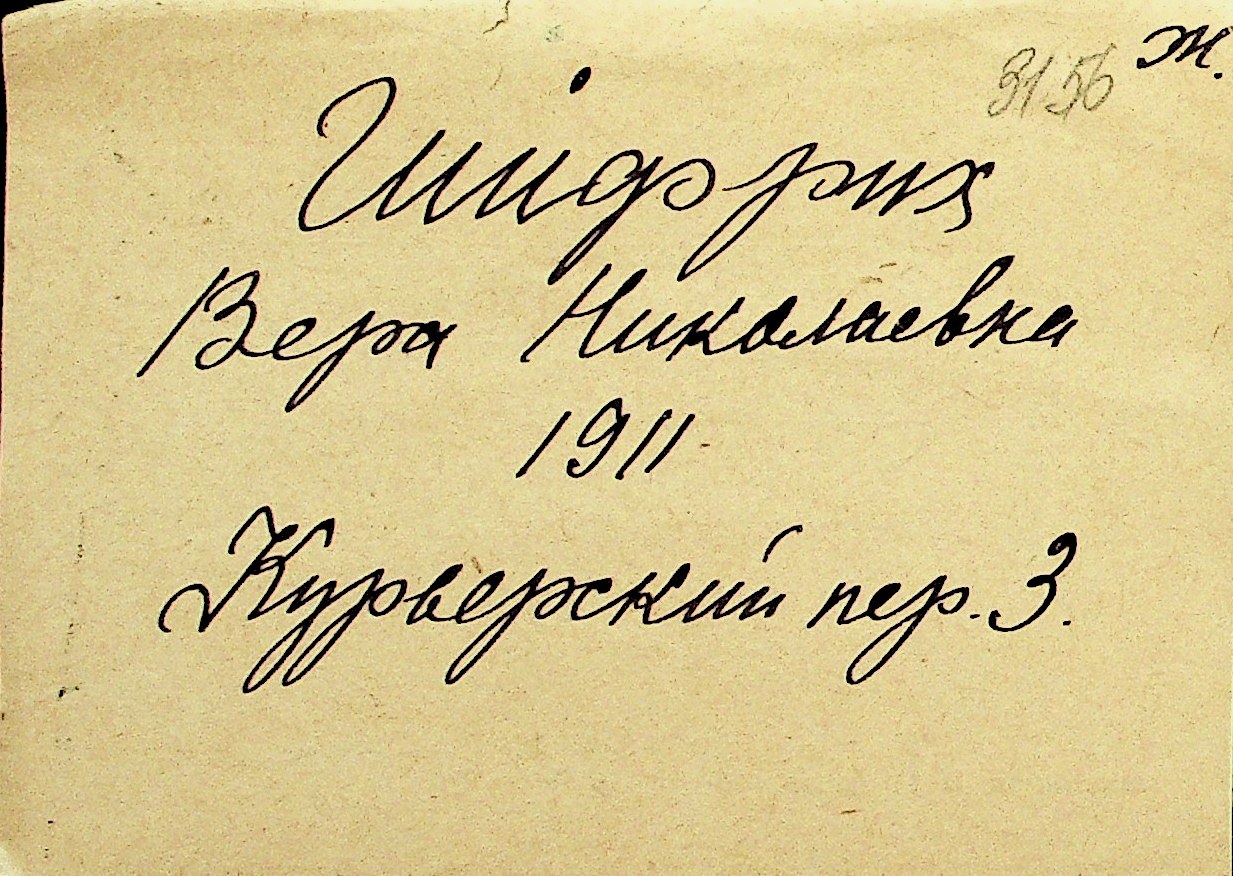 3156 ж.
Шифрих
Вера Николаевна
1911
Курьерский пер. 3.